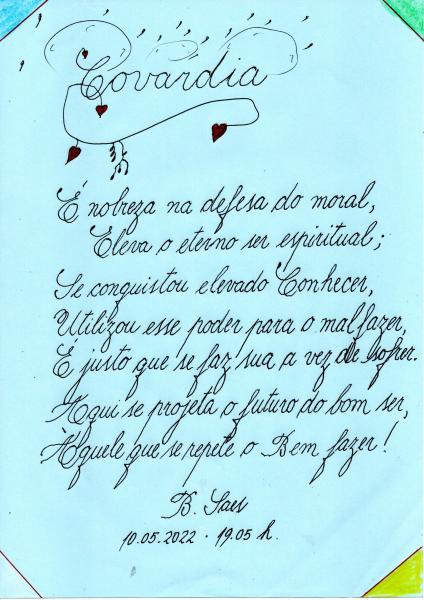 Covardia
É nobreza na defesa do moral,
Eleva o eterno ser espiritual;
Se conquistou elevado Conhecer,
Utilizou esse poder para o mal fazer,
É justo que se faz sua a vez de sofrer.
Aqui se projeta o futuro do bom ser,
Àquele que se repete o Bem fazer!
B. Saes
10.05.2022 · 19.05 h.